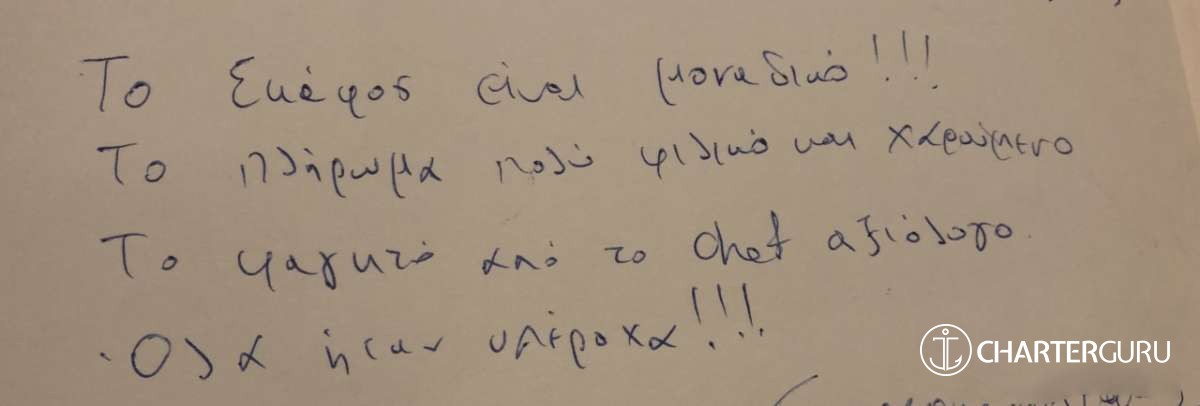 Το Σκάφος είναι μοναδικό!!!
Το πλήρωμα πολύ φιλικό και χαρούμενο
Το φαγητό από το chef αξιόλογο.
Όλα ήταν υπέροχα!!!
CHARTERGURU